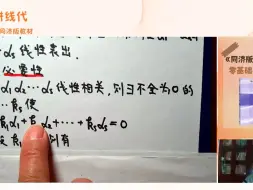 讲线代
同济版教材
αs 线性表出.
必要性
α1 α2 ⋯ αs 线性相关, 则∃不全为0的
使
k1α1+k ⋯ + ksαs = 0
《同济版
零基础